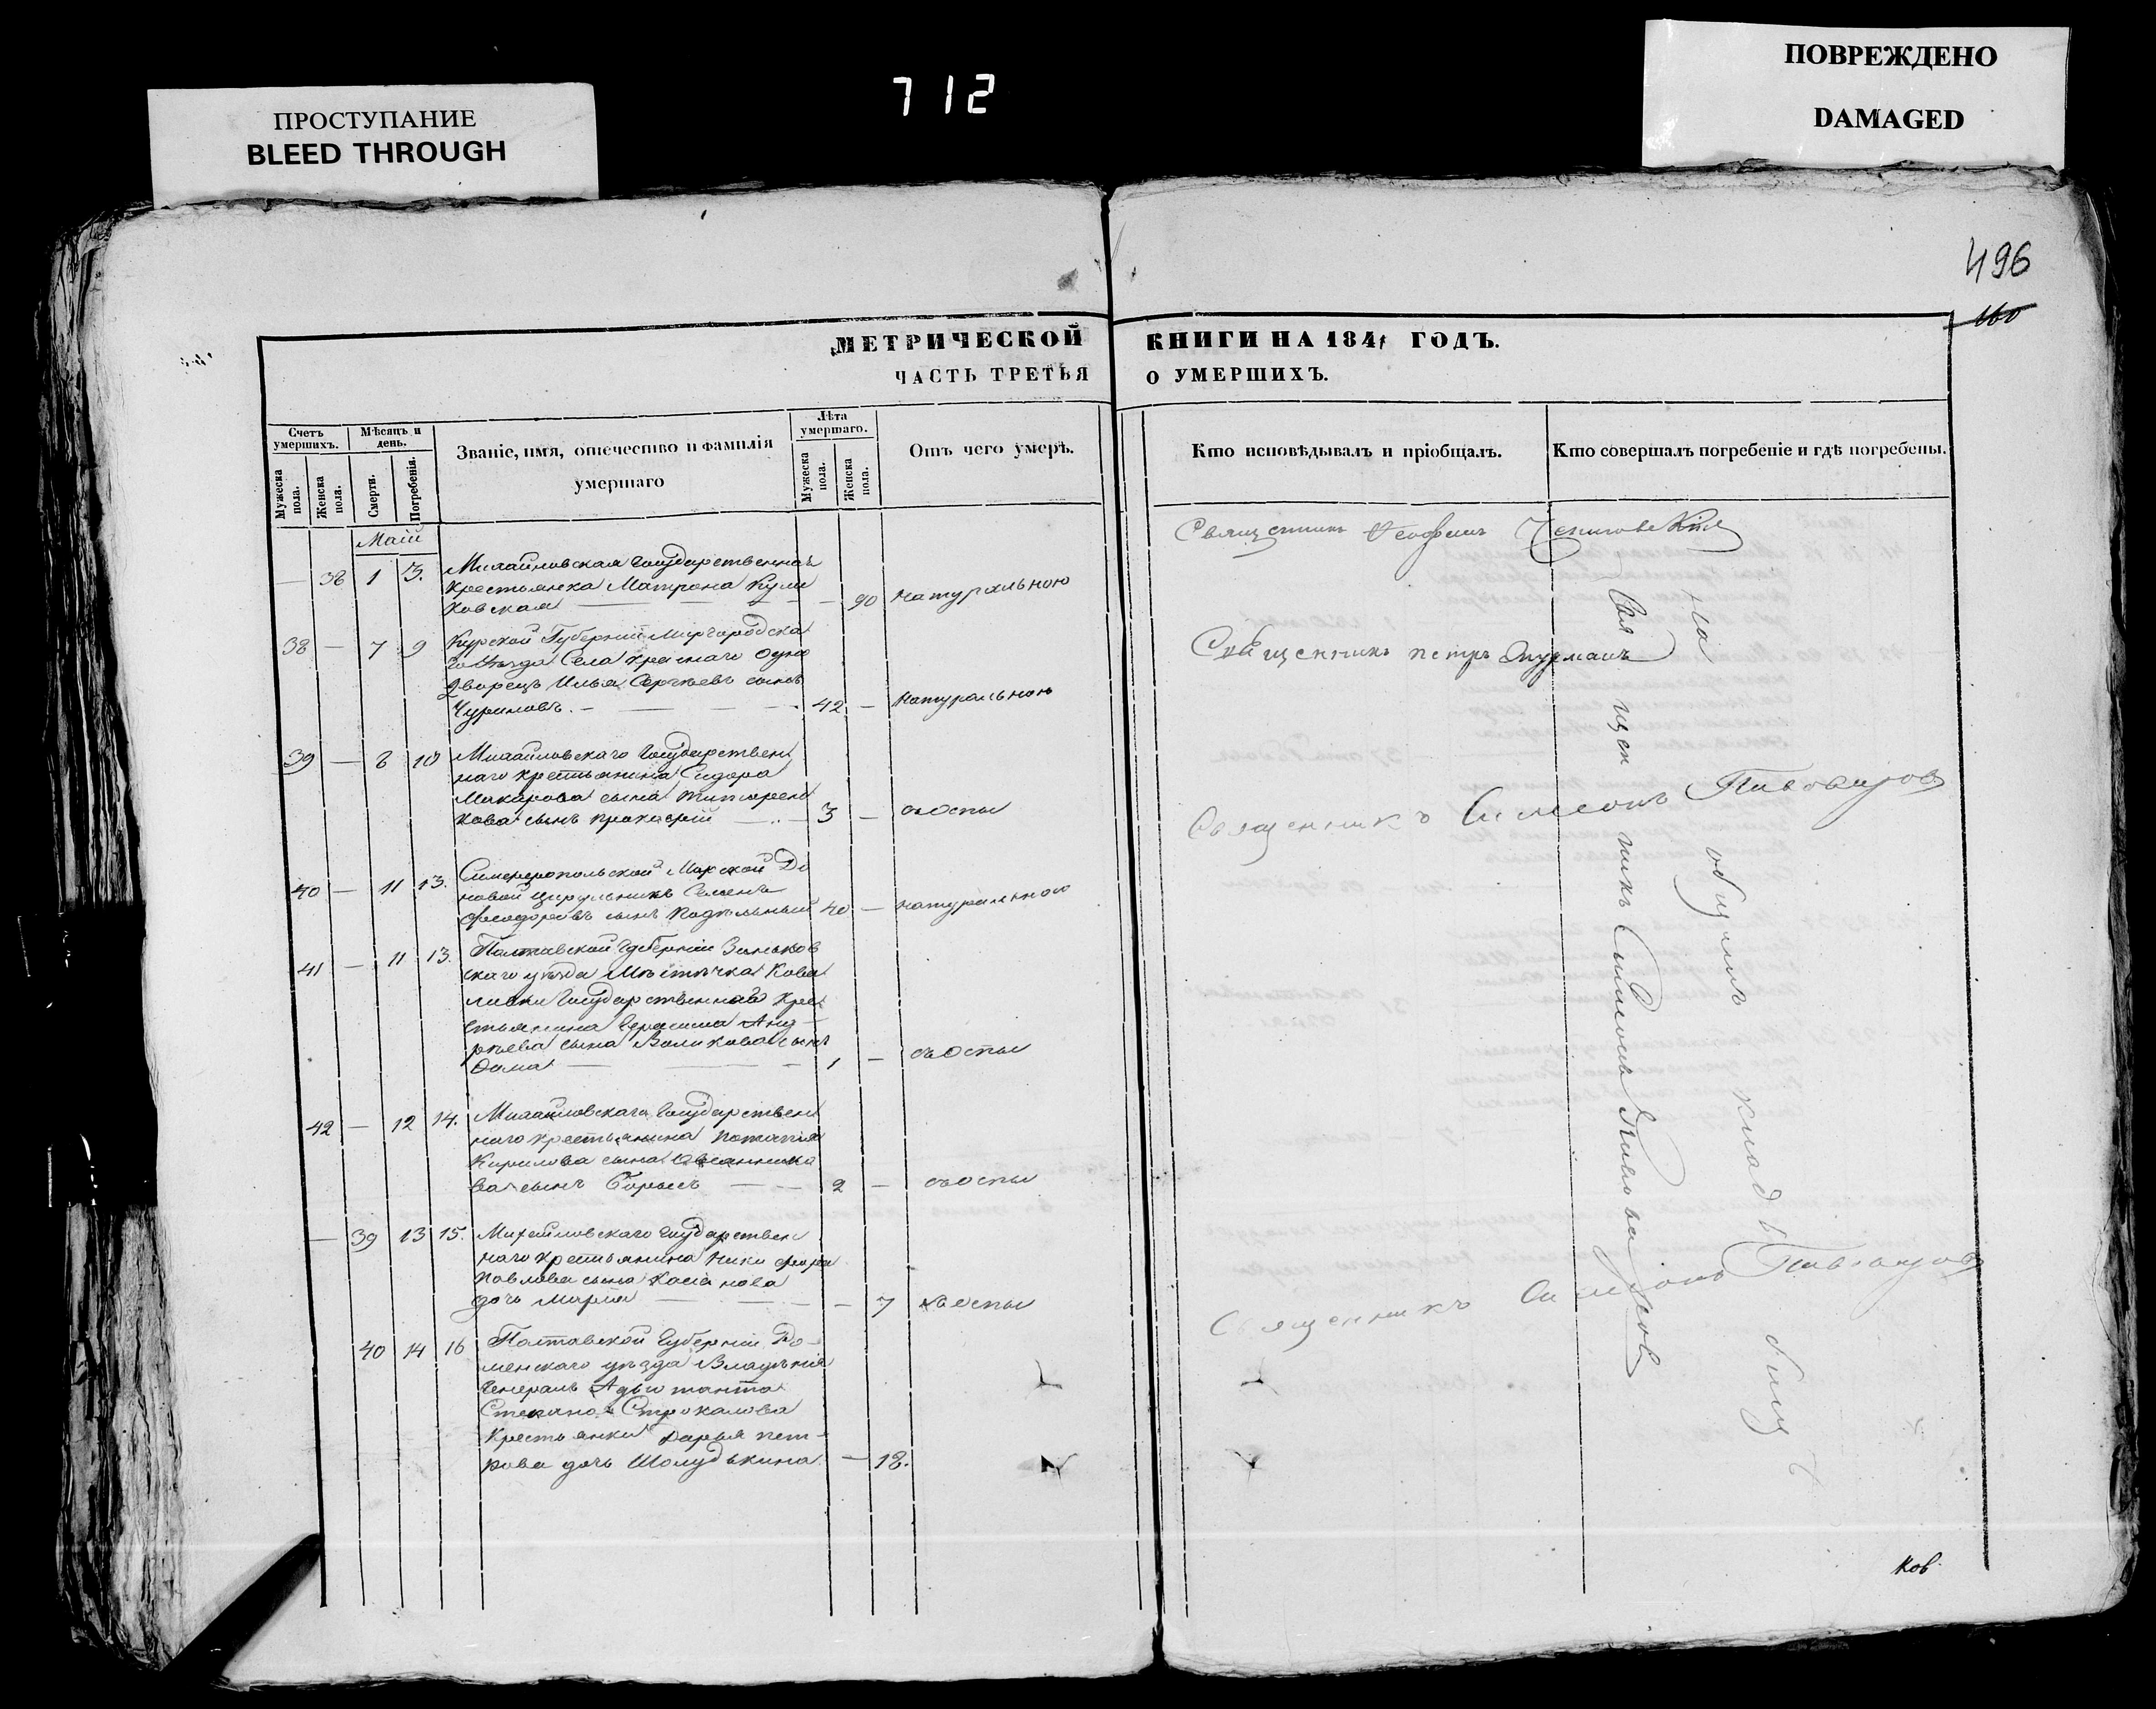 ПРОСТУПАНИЕ
BLEED THROUGH
712
ПОВРЕЖДЕНО
DAMAGED
496
160
МЕТРИЧЕСКОЙ КНИГИ НА 1841 ГОДЪ.
ЧАСТЬ ТРЕТЬЯ О УМЕРШИХЪ.
Счетъ умершихъ.
Мужеска пола.
Женска пола.
Мѣсяцъ и день.
Смерти.
Погребенія.
Званіе, имя, отечество и фамилія
умершаго
Лѣта умершаго.
Мужеска пола.
Женска пола.
Отъ чего умеръ.
Кто исповѣдывалъ и пріобщалъ.
Кто совершалъ погребеніе и гдѣ погребены.
Маій
— 38 1 3. Михайловская Государственная
крестьянка Матрона Кули
ковская — 90 натуральною
Священникъ
38 — 7 9 Курской Губерніи
уѣзда Села краснаго одно
дворецъ Илья Сергѣевъ сынъ
Чуриловъ. — 42 — натуральною
Священникъ петръ
39 — 8 10 Михайловскаго Государствен
наго крестьянина Сидора
Макарова сына
кова сынъ — 3 — съоспы
Священникъ Симеонъ Пивоваров
40 — 11 13. Симферопольской Морской
цирульникъ Семенъ
Феодоровъ сынъ 40 — натуральною
41 — 11 13. Полтавской Губерніи Зиньков
скаго уѣзда Мѣстечка Кова
левки Государственнаго крес
тьянина Герасима Анд-
рѣева сына Воликова сынъ
Фома — 1 — съоспы
42 — 12 14. Михайловскаго Государствен
наго крестьянина Потапія
Кирилова сына Овсянника
ва сынъ Борисъ — 2 — съоспы
— 39 13 15. Михайловскаго Государствен
наго крестьянина Никифора
Павлова сына Касіанова
дочь Марія — 7 съоспы
40 14 16 Полтавской Губерніи Ро-
менскаго уѣзда Владѣнія
Генералъ Адъютанта
Степана Стрекалова
Крестьянки Дарья пет-
рова дочь Шолудькина — 18.
Священникъ Симеонъ Пивоваров
Священникъ Симеонъ Пивоваров
На общемъ кладбищѣ
Ков